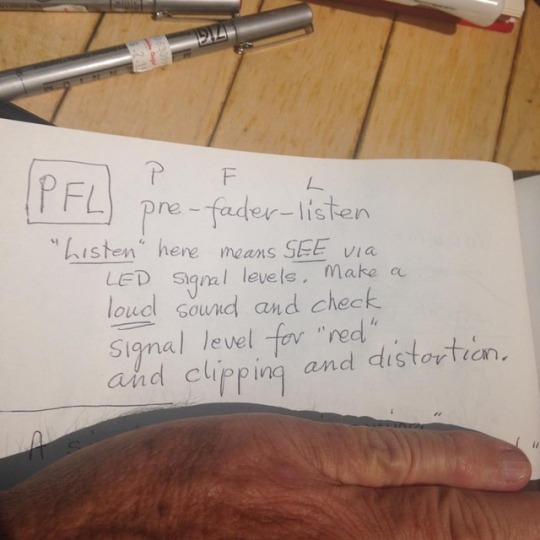 PFL
P F L
pre-fader-listen
"Listen" here means SEE via
LED signal levels. Make a
loud sound and check
signal level for "red"
and clipping and distortion.
A